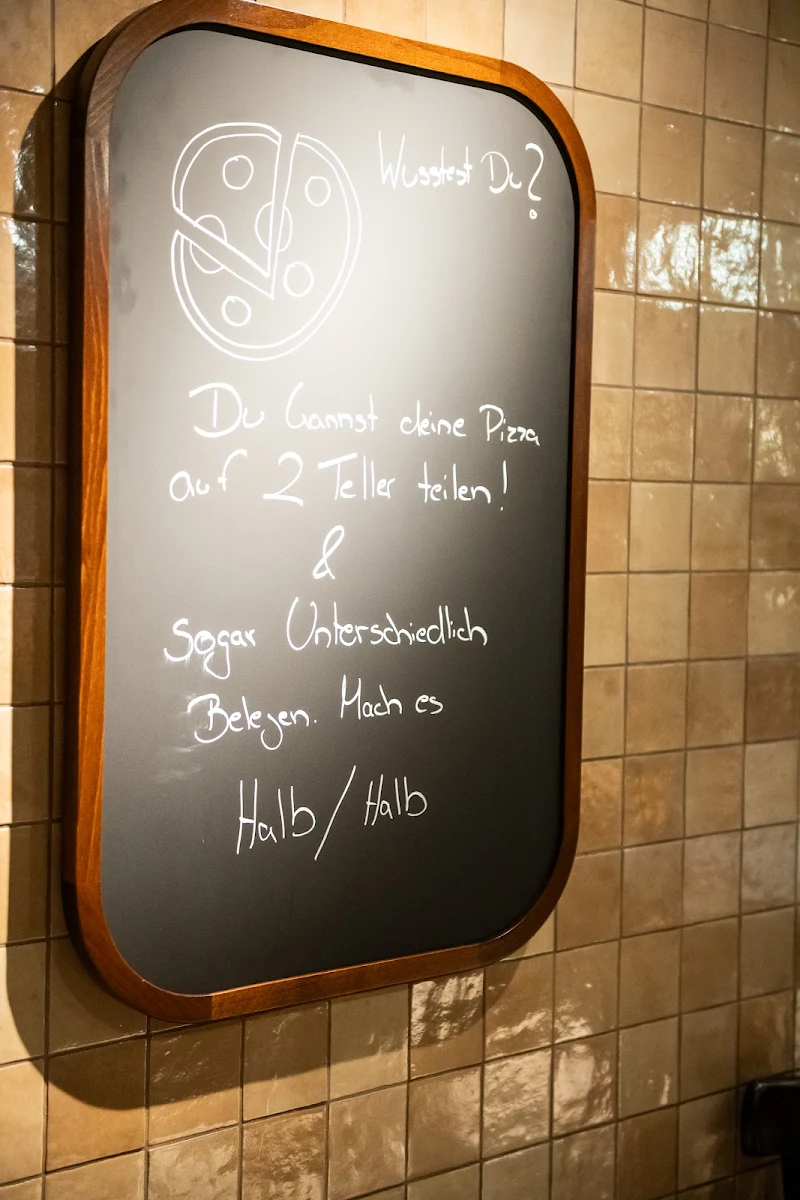 Wusstest Du?
Du kannst deine Pizza
auf 2 Teller teilen!
&
Sogar Unterschiedlich
Belegen. Mach es
Halb/Halb